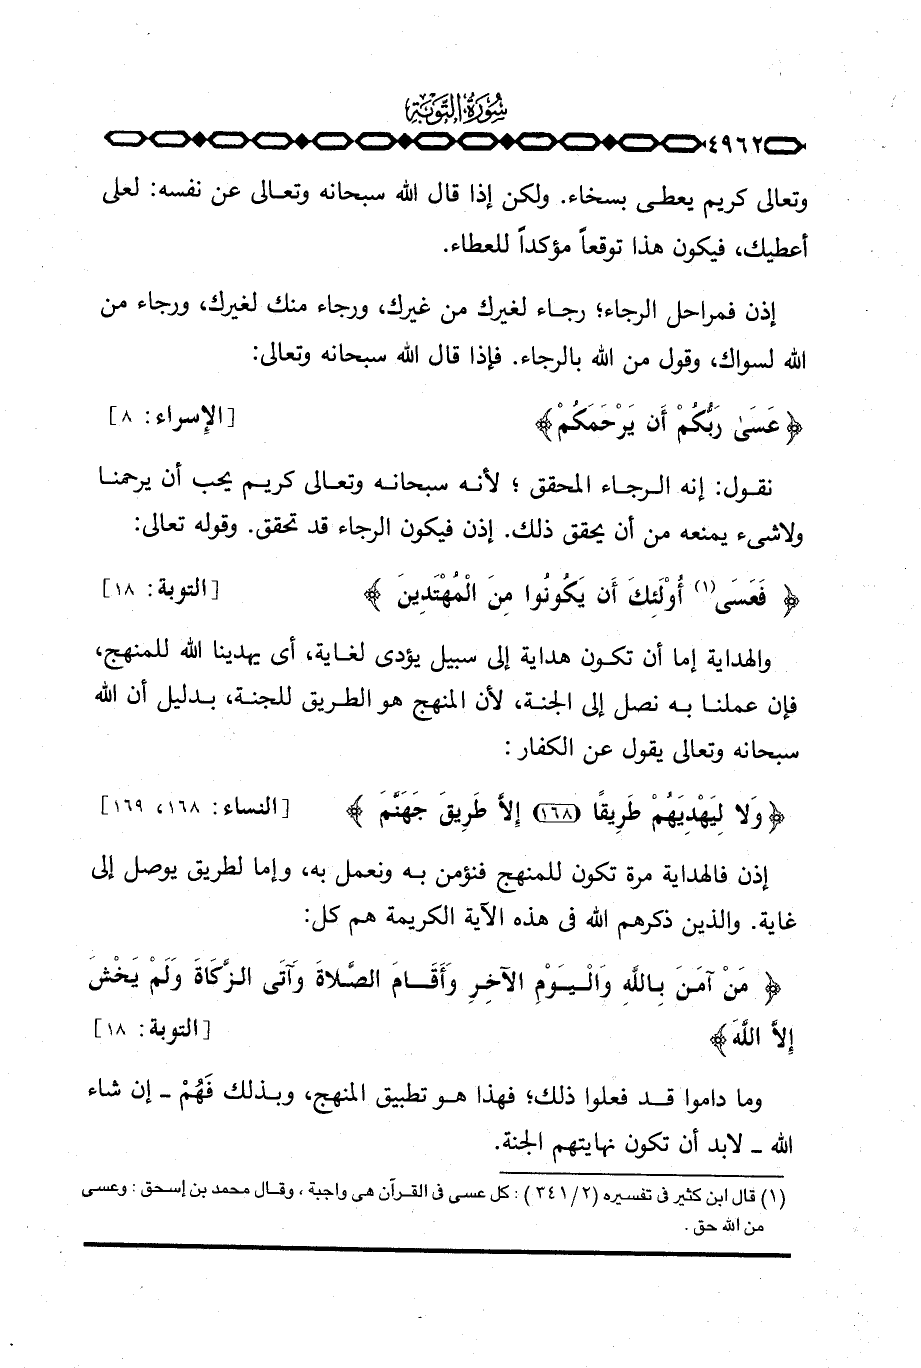 سُورَةُ التَّوْبَةِ
٤٩٦٢
وتعالى كريم يعطى بسخاء. ولكن إذا قال الله سبحانه وتعالى عن نفسه: لعلى
أعطيك، فيكون هذا توقعاً مؤكداً للعطاء.
إذن فمراحل الرجاء؛ رجاء لغيرك من غيرك، ورجاء منك لغيرك، ورجاء من
الله لسواك، وقول من الله بالرجاء. فإذا قال الله سبحانه وتعالى:
﴿ عَسَىٰ رَبُّكُمْ أَن يَرْحَمَكُمْ ﴾ [الإسراء: ٨]
نقول: إنه الرجاء المحقق ؛ لأنه سبحانه وتعالى كريم يحب أن يرحمنا
ولاشىء يمنعه من أن يحقق ذلك. إذن فيكون الرجاء قد تحقق. وقوله تعالى:
﴿ فَعَسَى(١) أُوْلَئِكَ أَن يَكُونُوا مِنَ الْمُهْتَدِينَ ﴾ [التوبة: ١٨]
والهداية إما أن تكون هداية إلى سبيل يؤدى لغاية، أى يهدينا الله للمنهج،
فإن عملنا به نصل إلى الجنة، لأن المنهج هو الطريق للجنة، بدليل أن الله
سبحانه وتعالى يقول عن الكفار :
﴿ وَلا لِيَهْدِيَهُمْ طَرِيقًا (١٦٨) إِلاَّ طَرِيقَ جَهَنَّمَ ﴾ [النساء: ١٦٨، ١٦٩]
إذن فالهداية مرة تكون للمنهج فنؤمن به ونعمل به، وإما لطريق يوصل إلى
غاية. والذين ذكرهم الله فى هذه الآية الكريمة هم كل:
﴿ مَنْ آمَنَ بِاللَّهِ وَالْيَوْمِ الآخِرِ وَأَقَامَ الصَّلاةَ وَآتَى الزَّكَاةَ وَلَمْ يَخْشَ
إِلاَّ اللَّهَ ﴾ [التوبة: ١٨]
وما داموا قد فعلوا ذلك؛ فهذا هو تطبيق المنهج، وبذلك فَهُمْ ـ إن شاء
الله ـ لابد أن تكون نهايتهم الجنة.
(١) قال ابن كثير فى تفسيره (٣٤١/٢) : كل عسى فى القرآن هى واجبة ، وقال محمد بن إسحق : وعسى
من الله حق .